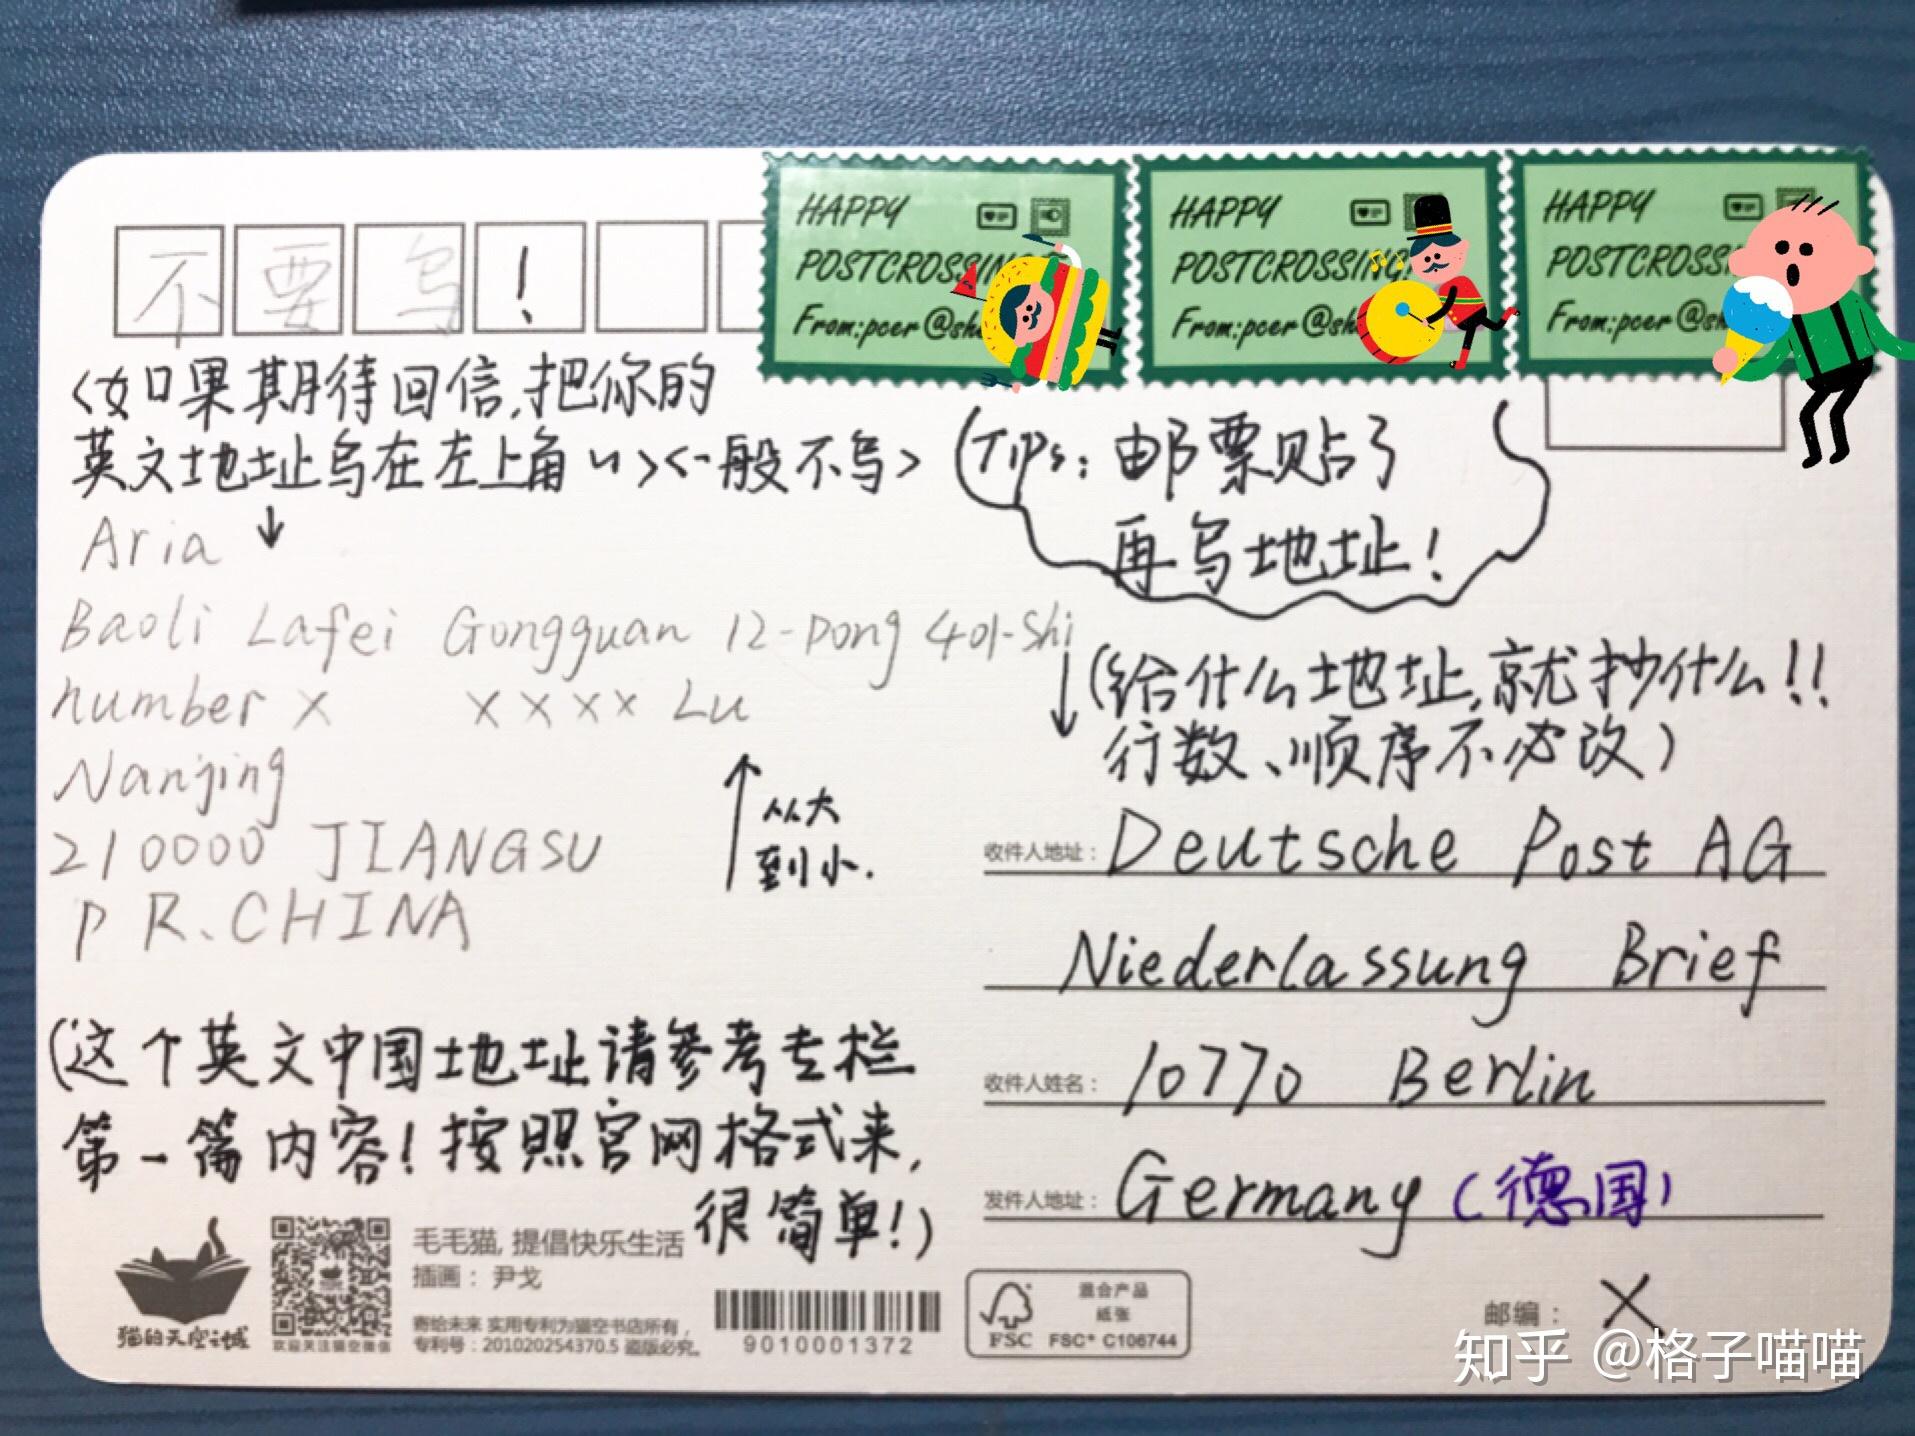 不要写!
HAPPY
POSTCROSSING
From:pcer @sh
HAPPY
POSTCROSSING
From:pcer @sh
HAPPY
POSTCROSSI
From:pcer @s
<如果期待回信,把你的
英文地址写在左上角~><一般不写>
↓
(Tips: 邮票贴了
再写地址!
Aria
Baoli Lafei Gongguan 12-Dong 401-Shi
number × ×××× Lu
Nanjing
210000 JIANGSU
P R.CHINA
↑从大
到小.
(这个英文中国地址请参考专栏
第一篇内容!按照官网格式来,
很简单!)
↓(给什么地址,就抄什么!!
行数、顺序不必改)
收件人地址: Deutsche Post AG
Niederlassung Brief
收件人姓名: 10770 Berlin
发件人地址: Germany (德国)
邮编: ×
猫的天空之城
欢迎关注猫空微信
毛毛猫, 提倡快乐生活
插画: 尹戈
寄给未来 实用专利为猫空书店所有,
专利号:201020254370.5 盗版必究。
9010001372
FSC
混合产品
纸张
FSC® C106744
知乎 @格子喵喵